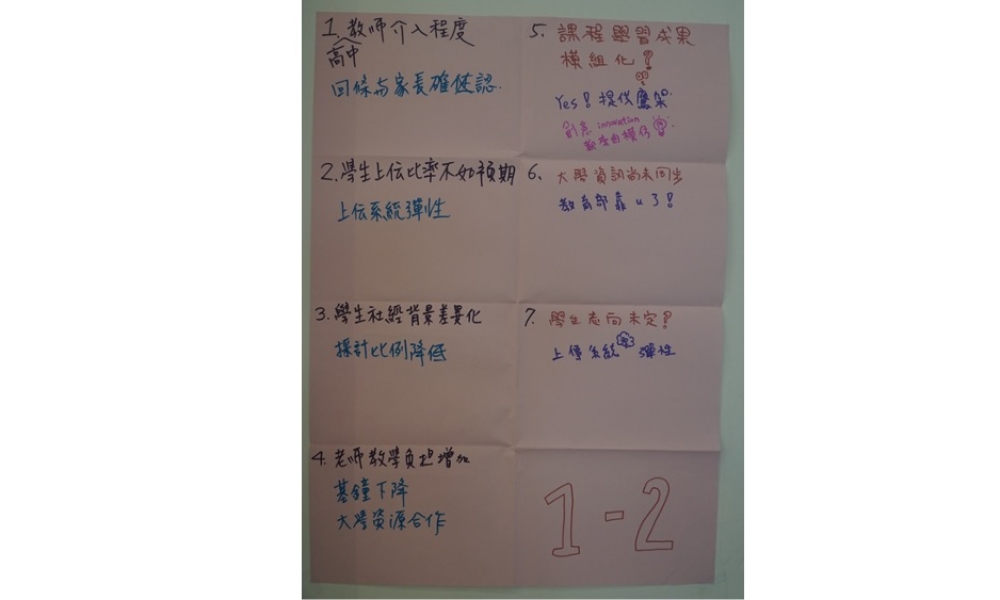 1. 教师介入程度
高中
回條与家長確使認.
2. 學生上伝比率不如預期
上伝系統彈性
3. 學生社經背景差異化
採計比例降低
4. 老师教學負担增加
基鐘下降
大學資源合作
5. 課程學習成果
模組化!
Yes! 提供鷹架
創意 innovation
都來自模仿
6、大學資訊尚未同步
教育部靠u了!
7. 學生志向未定!
上傳系統 彈性
1-2